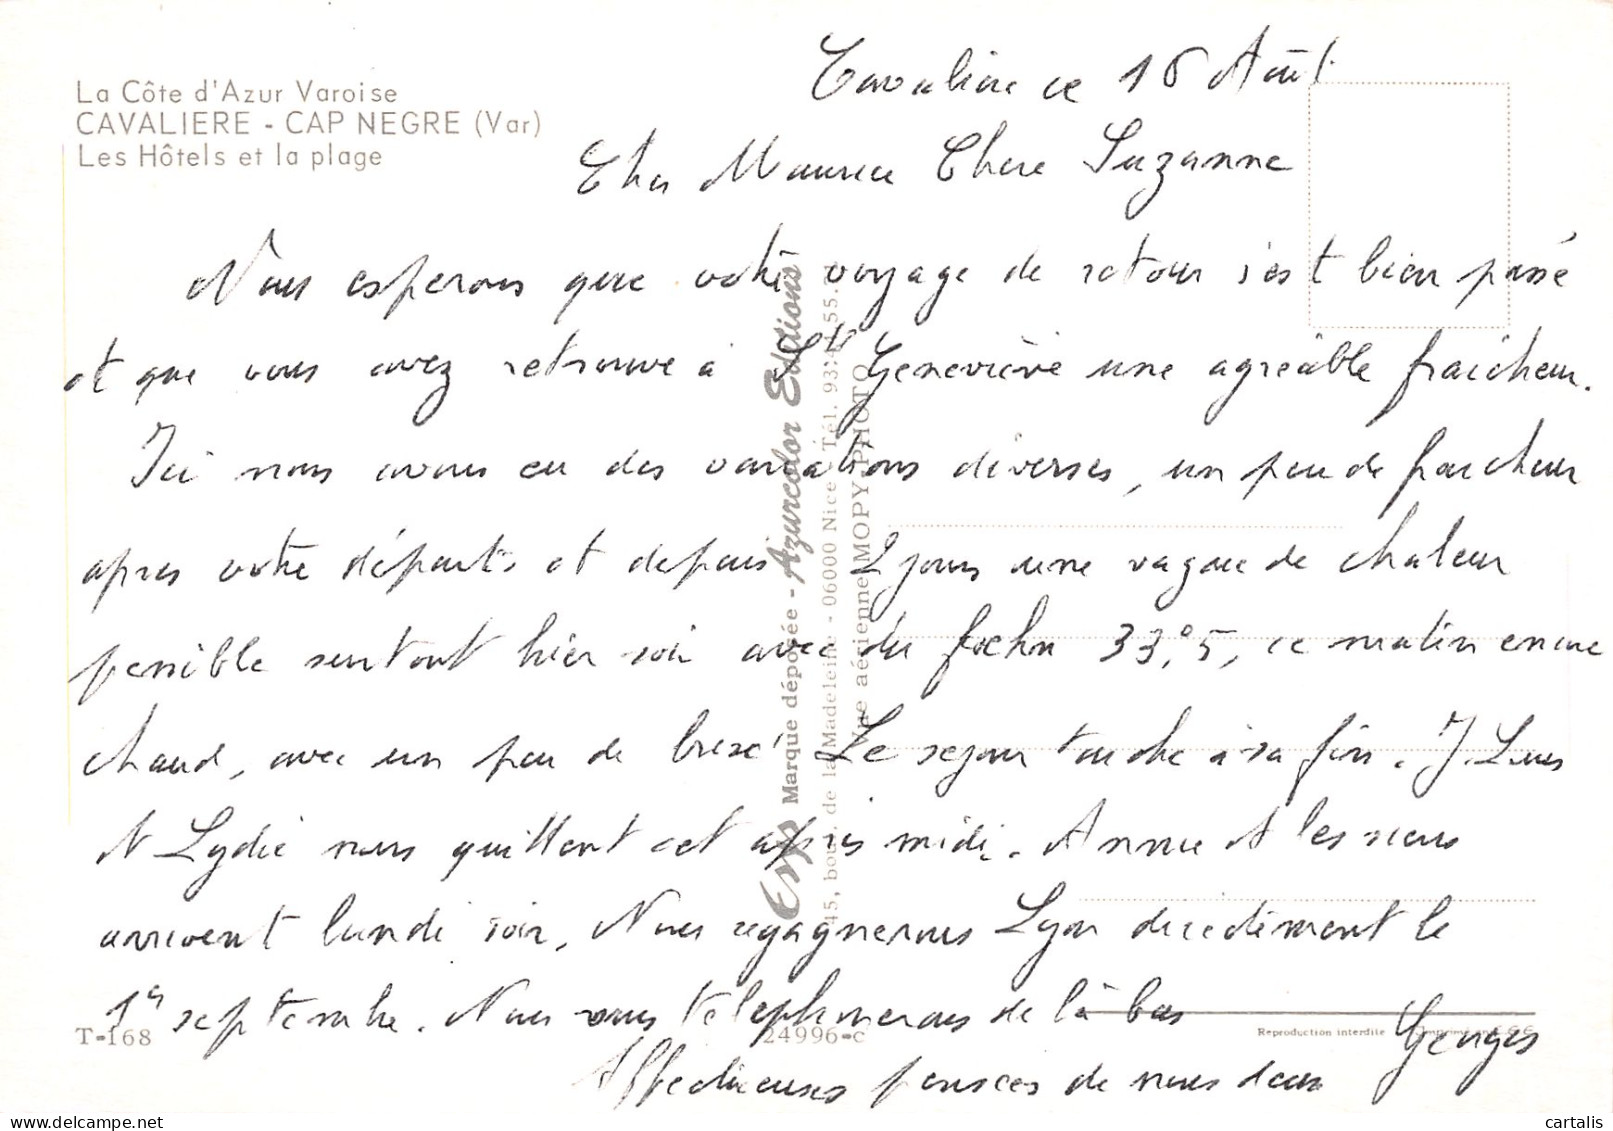 La Côte d'Azur Varoise
CAVALIERE - CAP NEGRE (Var)
Les Hôtels et la plage
Cavalière ce 16 Août
Cher Maurice Chère Suzanne
Nous esperons que votre voyage de retour s'est bien passé
et que vous avez retrouvé à Ste Geneviève une agréable fraicheur.
Ici nous avons eu des variations diverses, un peu de fraicheur
apres votre départ et depuis 2 jours une vague de chaleur
penible surtout hier soir avec du foehn 33°,5, ce matin encore
chaud, avec un peu de brise! Le sejour touche à sa fin. J. Louis
et Lydie nous quittent cet après midi. Annie et les siens
arrivent lundi soir. Nous regagnerons Lyon
le
1er septembre. Nous vous telephonerons de là bas
Affectueuses pensées de nous deux
Georges
T-168
24996-c
Reproduction interdite
Erp Marque déposée - Azurcolor Editions
45, boul. de la Madeleine - 06000 Nice - Tél. 93
Vue aérienne MOPY-PHOTO
cartalis